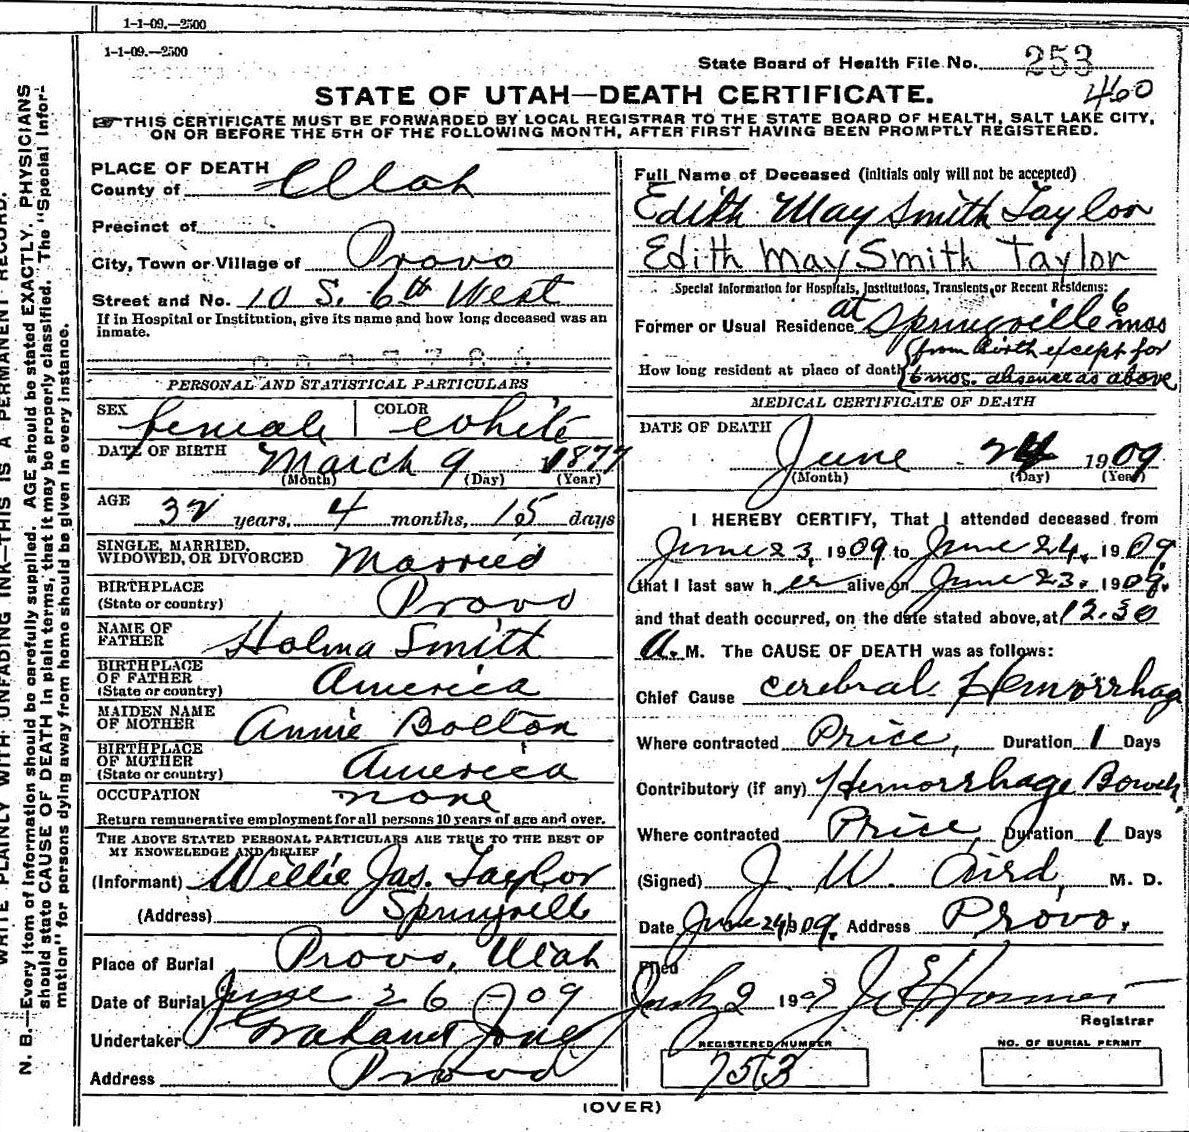 1-1-09.—2500
1-1-09.—2500
State Board of Health File No. 253
460
STATE OF UTAH—DEATH CERTIFICATE.
THIS CERTIFICATE MUST BE FORWARDED BY LOCAL REGISTRAR TO THE STATE BOARD OF HEALTH, SALT LAKE CITY,
ON OR BEFORE THE 5TH OF THE FOLLOWING MONTH, AFTER FIRST HAVING BEEN PROMPTLY REGISTERED.
PLACE OF DEATH
County of Utah
Precinct of
City, Town or Village of Provo
Street and No. 10 S. 6th West
If in Hospital or Institution, give its name and how long deceased was an
inmate.
PERSONAL AND STATISTICAL PARTICULARS
SEX female COLOR white
DATE OF BIRTH March 9 1877
(Month) (Day) (Year)
AGE 32 years, 4 months, 15 days
SINGLE, MARRIED,
WIDOWED, OR DIVORCED Married
BIRTHPLACE
(State or country) Provo
NAME OF
FATHER Holma Smith
BIRTHPLACE
OF FATHER
(State or country) America
MAIDEN NAME
OF MOTHER Annie Bolton
BIRTHPLACE
OF MOTHER
(State or country) America
OCCUPATION none
Return remunerative employment for all persons 10 years of age and over.
THE ABOVE STATED PERSONAL PARTICULARS ARE TRUE TO THE BEST OF
MY KNOWLEDGE AND BELIEF
(Informant) Willie Jas. Taylor
(Address) Springville
Place of Burial Provo, Utah
Date of Burial June 26 - 09
Undertaker Graham Jones
Address Provo
Full Name of Deceased (initials only will not be accepted)
Edith May Smith Taylor
Edith May Smith Taylor
Special Information for Hospitals, Institutions, Transients, or Recent Residents:
Former or Usual Residence at Springville 6 mos
How long resident at place of death (from birth except for
6 mos. absence as above
MEDICAL CERTIFICATE OF DEATH
DATE OF DEATH
June 24 1909
(Month) (Day) (Year)
I HEREBY CERTIFY, That I attended deceased from
June 23 1909 to June 24, 1909
that I last saw her alive on June 23, 1909,
and that death occurred, on the date stated above, at 12.30
A. M. The CAUSE OF DEATH was as follows:
Chief Cause cerebral Hemorrhag
Where contracted Price, Duration 1 Days
Contributory (if any) Hemorrhage Bowels,
Where contracted Price, Duration 1 Days
(Signed) J. W. Aird, M. D.
Date June 24 1909, Address Provo,
Filed
2 1909
Registrar
REGISTERED NUMBER
753
NO. OF BURIAL PERMIT
(OVER)
WRITE PLAINLY WITH UNFADING INK—THIS IS A PERMANENT RECORD.
N. B.—Every item of information should be carefully supplied. AGE should be stated EXACTLY. PHYSICIANS
should state CAUSE OF DEATH in plain terms, that it may be properly classified. The "Special Infor-
mation" for persons dying away from home should be given in every instance.